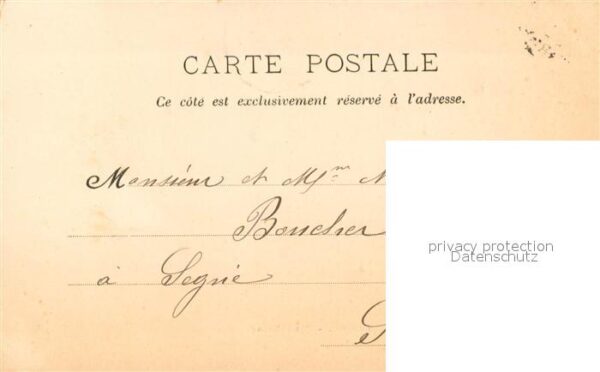 CARTE POSTALE
Ce côté est exclusivement réservé à l'adresse.
Monsieur et Mme
Boucher
à Segrie
privacy protection
Datenschutz